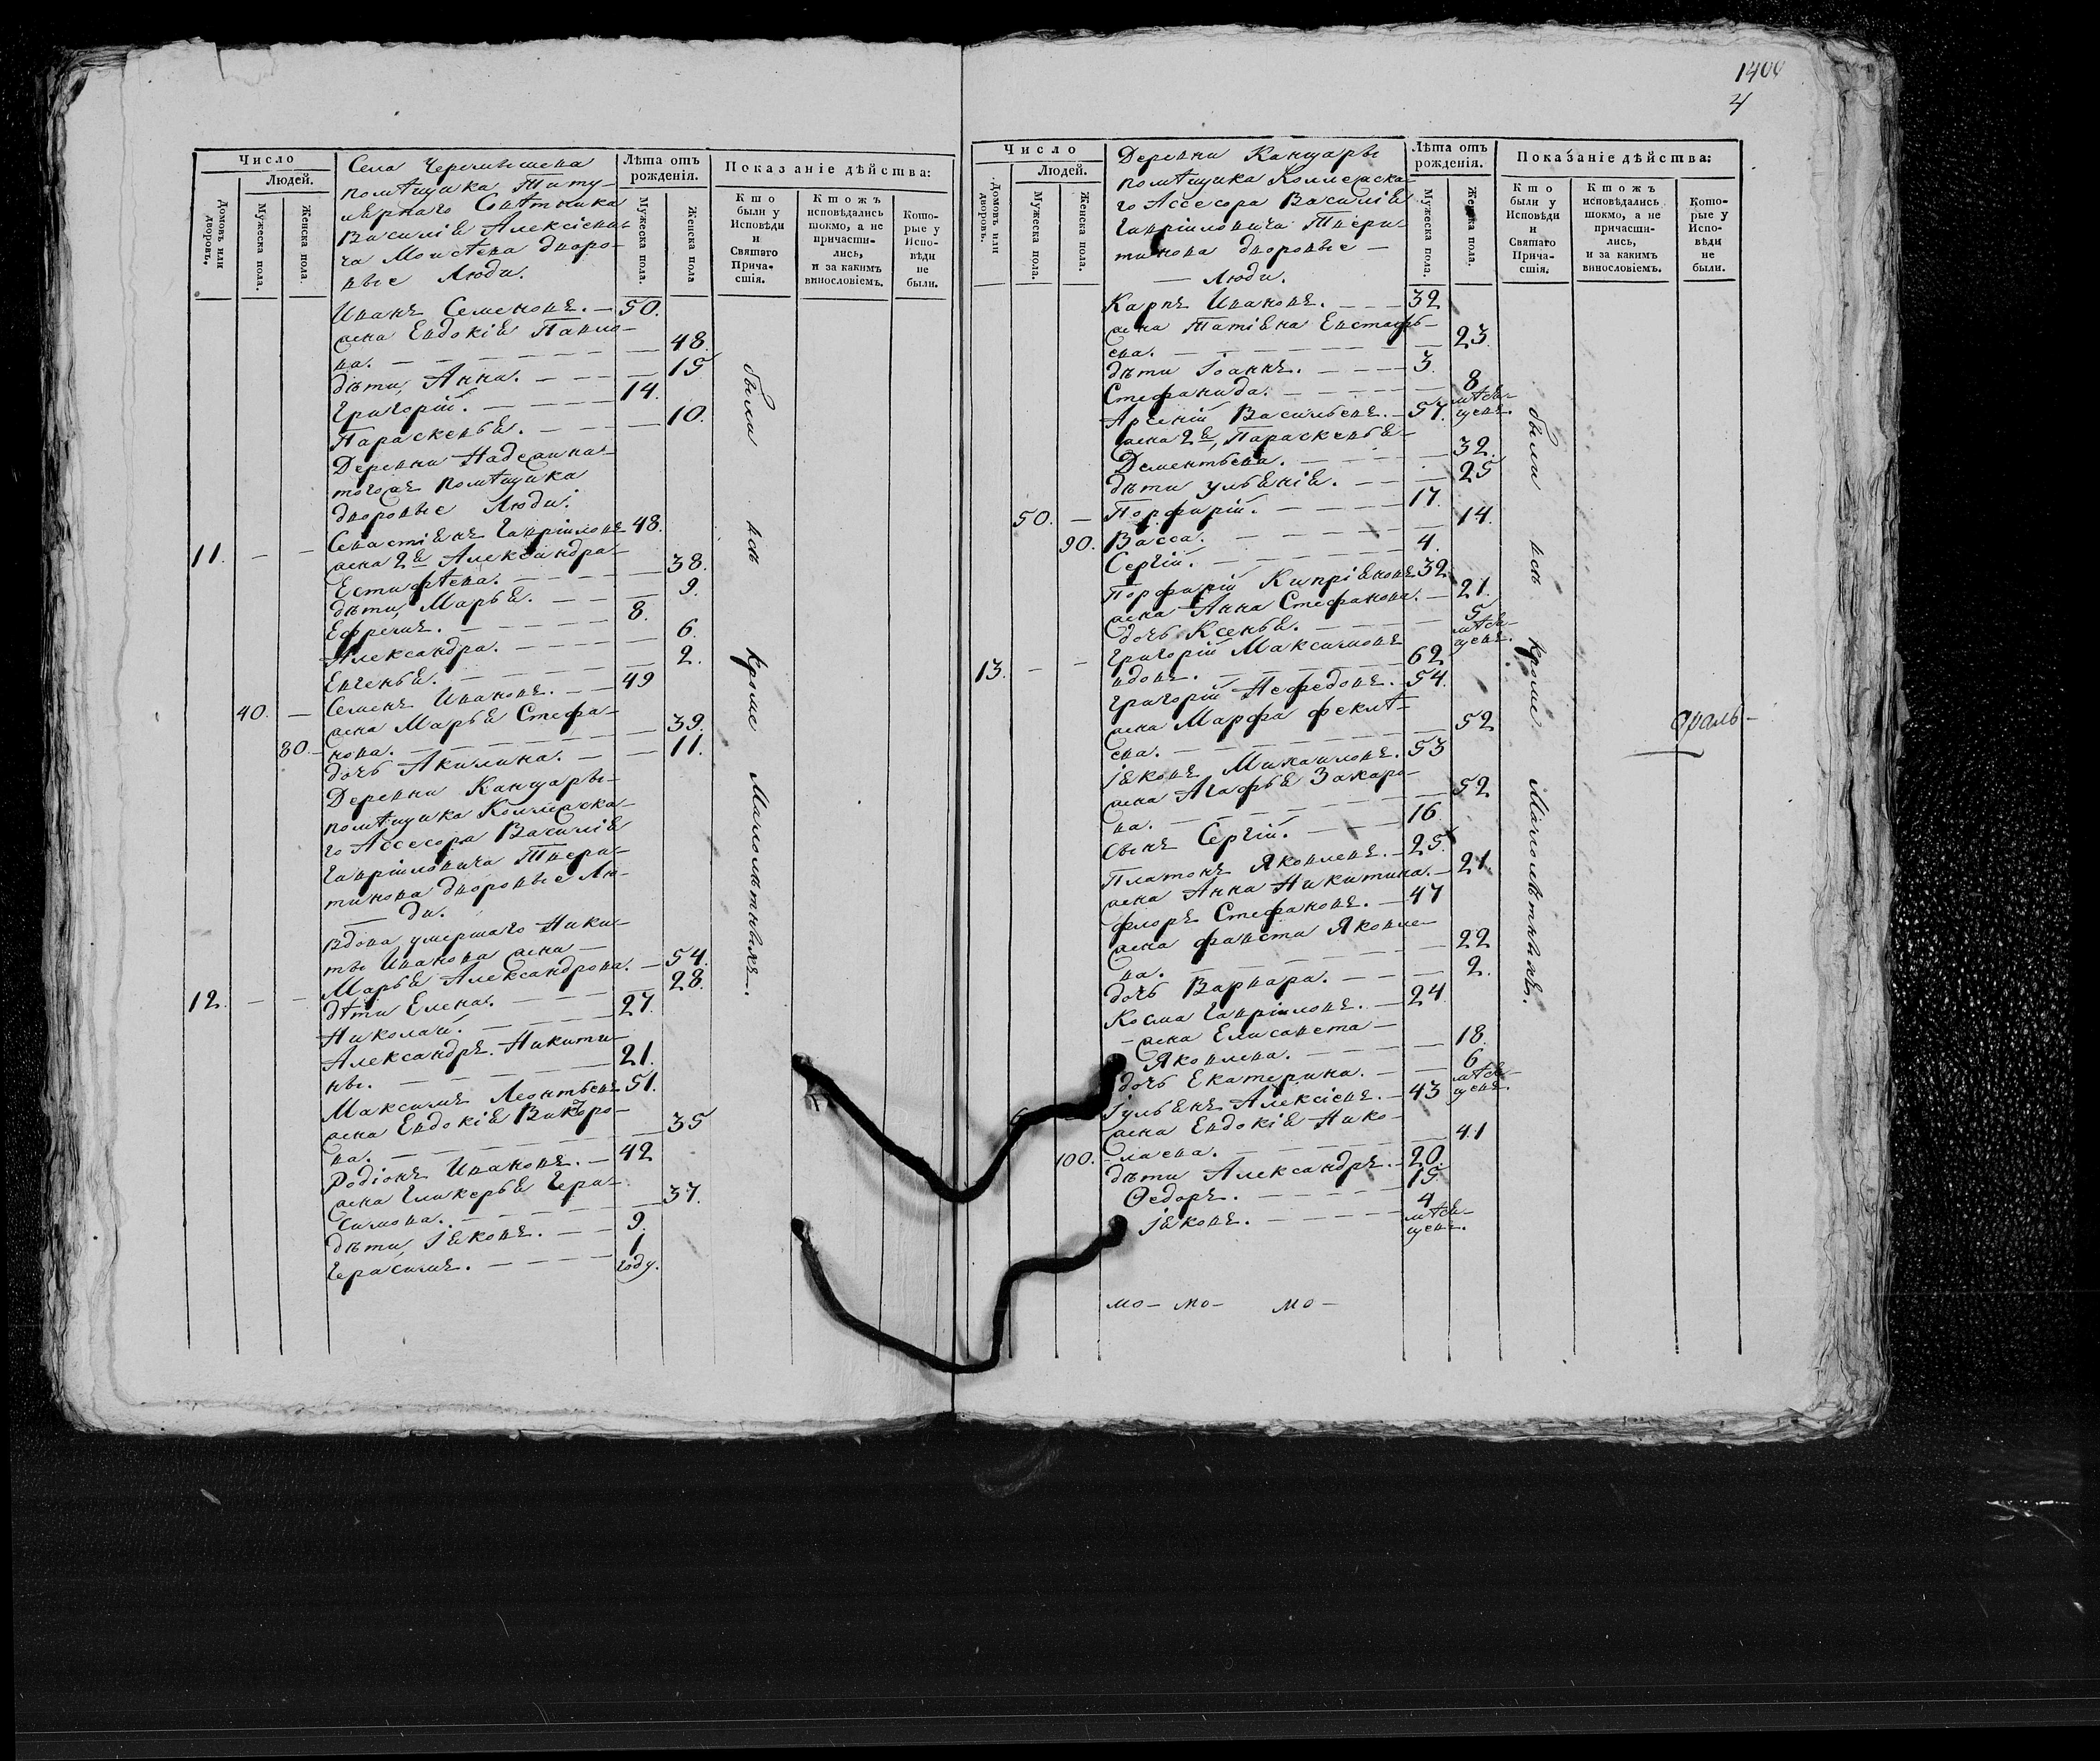 1400
4
Число
Людей.
Домовъ или дворовъ.
Мужеска пола.
Женска пола
Села Черемишева
помѣщика Титу-
лярнаго Совѣтника
Василія Алексіеви-
ча Моисѣева дворо-
выя Люди.
Лѣта отъ рожденія.
Мужеска пола.
Женска пола
Показаніе дѣйства:
Кто были у Исповѣди и Святаго Причастія.
Ктожъ исповѣдались токмо, а не причастились, и за какимъ винословіемъ.
Которые у Исповѣди не были.
Иванъ Семеновъ. — 50.
жена Евдокія Павло-
ва. — 48.
дѣти, Анна. — 15
Григорій. — 14.
Параскевья. — 10.
Деревни Надежина
тогожъ помѣщика
дворовые Люди.
11. Севастіянъ Гавріиловъ 48.
жена 2я Александра
Естифѣева. — 38.
дѣти, Марья. — 9.
Ефремъ. — 8.
Александра. — 6.
Евгенья. — 2.
40. Семенъ Ивановъ. — 49
жена Марья Стефа-
80. нова. — 39.
дочь Акилина. — 11.
Деревни Канцары
помѣщика Коллежска-
го Ассесора Василія
Гавріиловича Твери-
тинова дворовые Лю-
ди.
Вдова умершаго Ники-
ты Иванова жена
Марья Александрова. — 54.
12. дѣти Елена. — 28.
Николай. — 27.
Александръ Никити-
ны. — 21.
Максимъ Леонтьевъ 51.
жена Евдокія Викторо-
ва. — 35
Родіонъ Ивановъ. — 42
жена Гликерья Гера-
симова. — 37.
дѣти, Іяковъ. — 9.
Герасимъ. — 1 году.
были всѣ кроме Малолѣтныхъ.
Число
Людей.
Домовъ или дворовъ.
Мужеска пола.
Женска пола.
Деревни Канцары
помѣщика Коллежска-
го Ассесора Василія
Гавріиловича Твери-
тинова дворовые
Люди.
Лѣта отъ рожденія.
Мужеска пола.
Женска пола.
Показаніе дѣйства:
Кто были у Исповѣди и Святаго Причастія.
Ктожъ исповѣдались токмо, а не причастились, и за какимъ винословіемъ.
Которые у Исповѣди не были.
Карпъ Ивановъ. — 32
жена Татіяна Евстафь-
ева. — 23.
дѣти Іоаннъ. — 3.
Стефанида. — 8 мѣсяцевъ.
Арсеній Васильевъ. — 57.
жена 2я, Параскевья
Дементьева. — 32.
дѣти Ульянія. — 25
50. — Порфирій. — 17.
90. Васса. — 14.
Сергій. — 4.
Порфирій Кипріяновъ 32
жена Анна Стефанова. — 21.
дочь Ксенья. — 5 мѣсяцевъ.
13. Григорій Максимовъ
вдовъ. — 62
Григорій Нефедовъ. — 54.
жена Марфа Феклѣ-
ева. — 52
Іяковъ Михаиловъ. 53
жена Агафья Захаро-
ва. — 52
сынъ Сергій. — 16
Платонъ Яковлевъ. — 25.
жена Анна Никитина. — 21.
Флоръ Стефановъ. — 47
жена Фавста Яковле-
ва. — 22
дочь Варвара. — 2.
Косма Гавріиловъ. — 24.
жена Елисавета
Яковлева. — 18.
дочь Екатерина. — 6 мѣсяцевъ.
Іульянъ Алексіевъ. — 43
жена Евдокія Нико-
100. лаева. — 41
дѣти Александръ. — 20.
Ѳедоръ. — 15
Іяковъ. — 4 мѣсяцевъ.
были всѣ кроме Малолѣтныхъ.
мо— мо— мо—